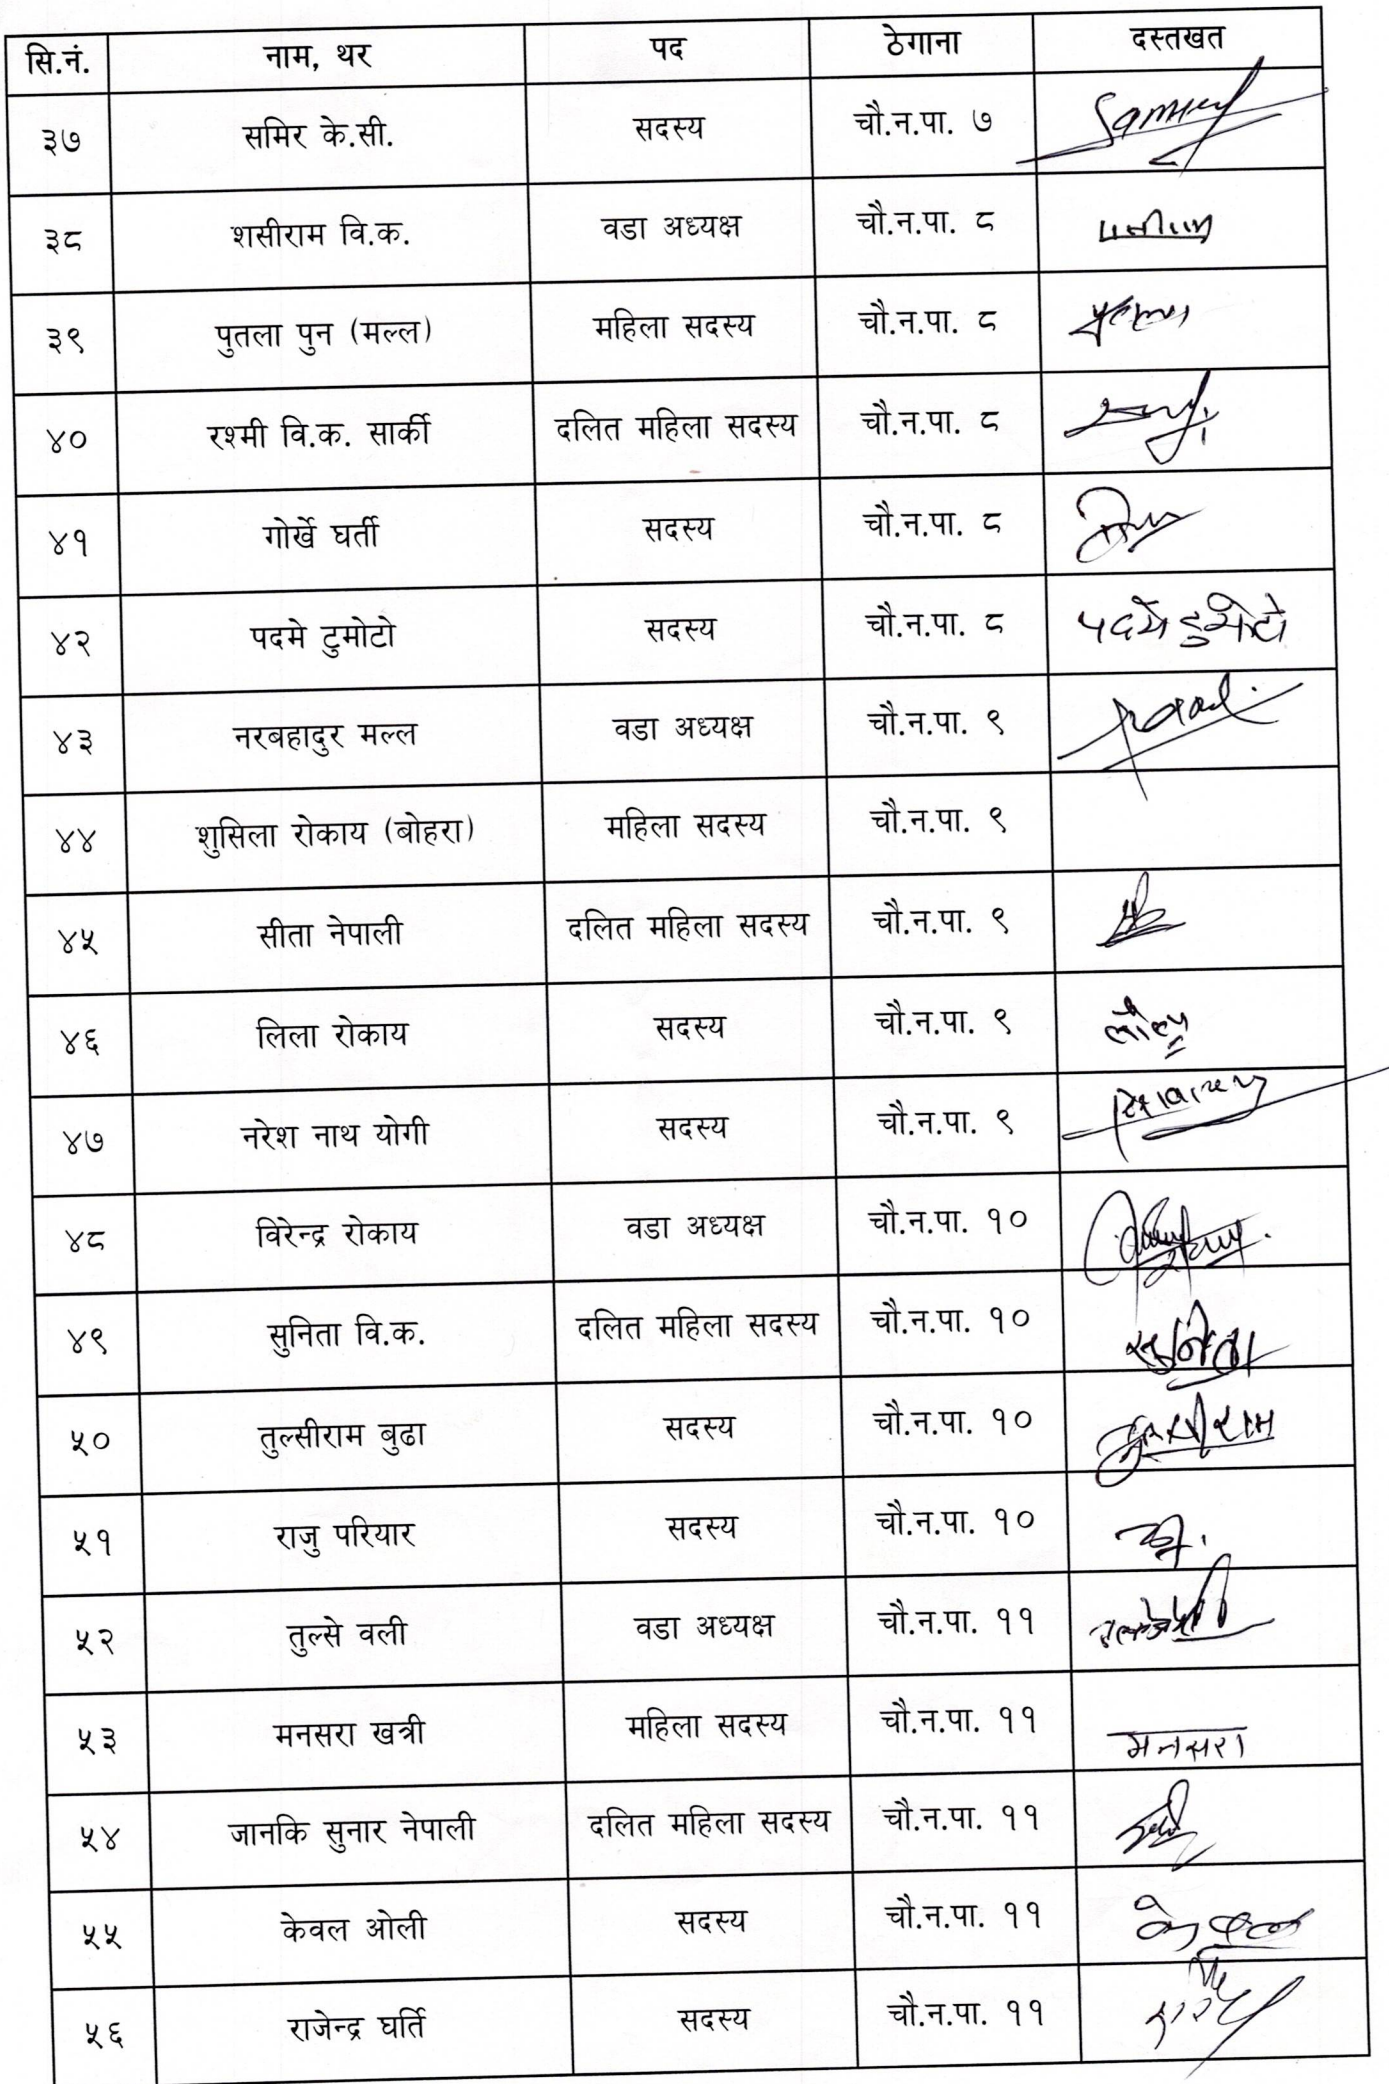 सि.नं. नाम, थर पद ठेगाना दस्तखत
३७ समिर के.सी. सदस्य चौ.न.पा. ७
३८ शसीराम वि.क. वडा अध्यक्ष चौ.न.पा. ८
३९ पुतला पुन (मल्ल) महिला सदस्य चौ.न.पा. ८
४० रश्मी वि.क. सार्की दलित महिला सदस्य चौ.न.पा. ८
४१ गोर्खे घर्ती सदस्य चौ.न.पा. ८
४२ पदमे टुमोटो सदस्य चौ.न.पा. ८
४३ नरबहादुर मल्ल वडा अध्यक्ष चौ.न.पा. ९
४४ शुसिला रोकाय (बोहरा) महिला सदस्य चौ.न.पा. ९
४५ सीता नेपाली दलित महिला सदस्य चौ.न.पा. ९
४६ लिला रोकाय सदस्य चौ.न.पा. ९
४७ नरेश नाथ योगी सदस्य चौ.न.पा. ९
४८ विरेन्द्र रोकाय वडा अध्यक्ष चौ.न.पा. १०
४९ सुनिता वि.क. दलित महिला सदस्य चौ.न.पा. १० सुनिता
५० तुल्सीराम बुढा सदस्य चौ.न.पा. १० तुल्सीराम
५१ राजु परियार सदस्य चौ.न.पा. १०
५२ तुल्से वली वडा अध्यक्ष चौ.न.पा. ११
५३ मनसरा खत्री महिला सदस्य चौ.न.पा. ११ मनसरा
५४ जानकि सुनार नेपाली दलित महिला सदस्य चौ.न.पा. ११
५५ केवल ओली सदस्य चौ.न.पा. ११ केवल
५६ राजेन्द्र घर्ति सदस्य चौ.न.पा. ११